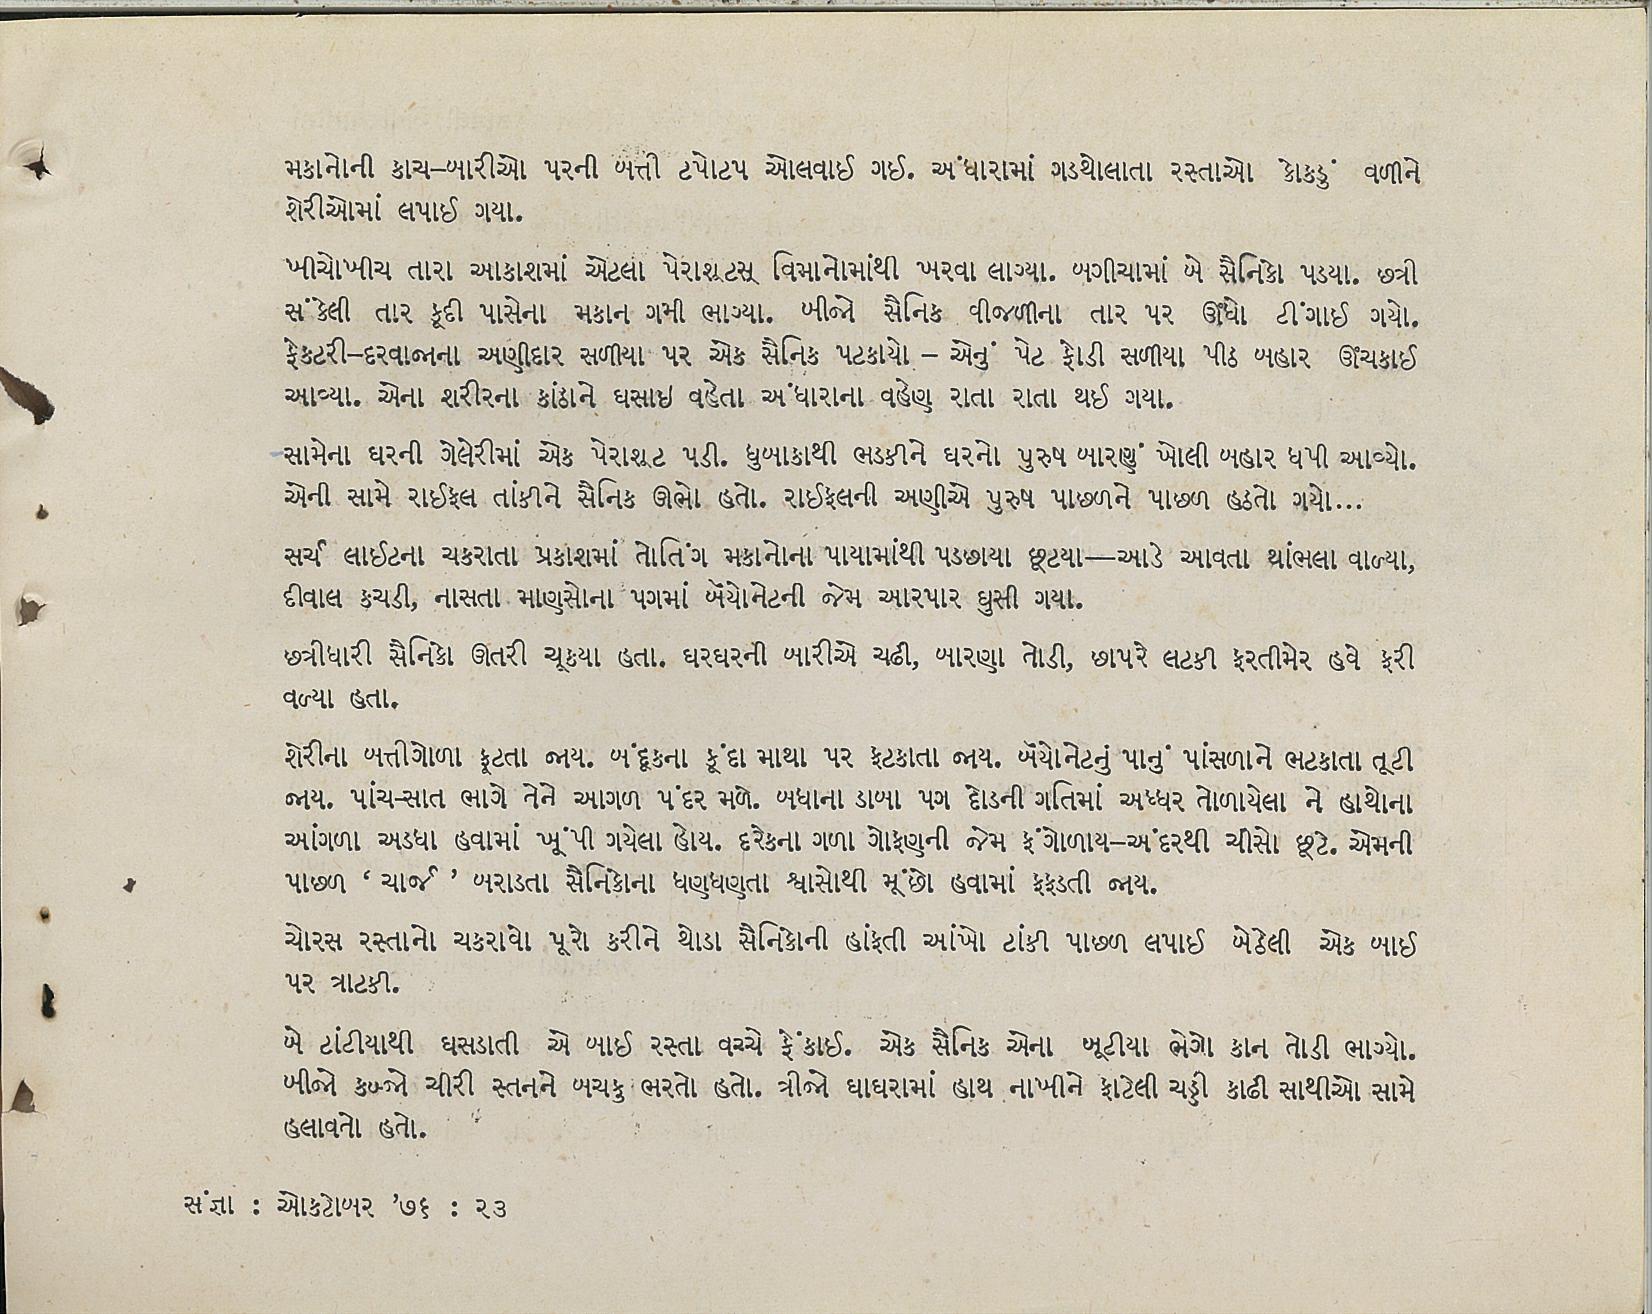 મકાનોની કાચ–બારીઓ પરની બત્તી ટપોટપ ઓલવાઈ ગઈ. અંધારામાં ગડથોલાતા રસ્તાઓ કોકડું વળીને
શેરીઓમાં લપાઈ ગયા.
ખીચોખીચ તારા આકાશમાં એટલા પેરાશૂટસ્ વિમાનોમાંથી ખરવા લાગ્યા. બગીચામાં બે સૈનિકો પડયા. છત્રી
સંકેલી તાર કૂદી પાસેના મકાન ગમી ભાગ્યા. બીજો સૈનિક વીજળીના તાર પર ઊંધો ટીંગાઈ ગયો.
ફેકટરી–દરવાજાના અણીદાર સળીયા પર એક સૈનિક પટકાયો – એનું પેટ ફોડી સળીયા પીઠ બહાર ઊંચકાઈ
આવ્યા. એના શરીરના કાંઠાને ઘસાઇ વહેતા અંધારાના વહેણ રાતા રાતા થઈ ગયા.
સામેના ઘરની ગેલેરીમાં એક પેરાશૂટ પડી. ધુબાકાથી ભડકીને ઘરનો પુરુષ બારણું ખોલી બહાર ધપી આવ્યો.
એની સામે રાઈફલ તાંકીને સૈનિક ઊભો હતો. રાઈફલની અણીએ પુરુષ પાછળને પાછળ હઠતો ગયો...
સર્ચ લાઈટના ચકરાતા પ્રકાશમાં તોતિંગ મકાનોના પાયામાંથી પડછાયા છૂટયા—આડે આવતા થાંભલા વાળ્યા,
દીવાલ કચડી, નાસતા માણસોના પગમાં બૅયોનેટની જેમ આરપાર ઘુસી ગયા.
છત્રીધારી સૈનિકો ઊતરી ચૂકયા હતા. ઘરઘરની બારીએ ચઢી, બારણા તોડી, છાપરે લટકી ફરતીમેર હવે ફરી
વળ્યા હતા.
શેરીના બત્તીગોળા ફૂટતા જાય. બંદૂકના કૂંદા માથા પર ફટકાતા જાય. બૅયોનેટનું પાનું પાંસળાને ભટકાતા તૂટી
જાય. પાંચ–સાત ભાગે તેને આગળ પંદર મળે. બધાના ડાબા પગ દોડની ગતિમાં અધ્ધર તોળાયેલા ને હાથોના
આંગળા અડધા હવામાં ખૂંપી ગયેલા હોય. દરેકના ગળા ગોફણની જેમ ફંગોળાય–અંદરથી ચીસો છૂટે. એમની
પાછળ ‘ ચાર્જ ’ બરાડતા સૈનિકોના ધણધણતા શ્વાસોથી મૂંછો હવામાં ફફડતી જાય.
ચોરસ રસ્તાનો ચકરાવો પૂરો કરીને થોડા સૈનિકોની હાંફતી આંખો ટાંકી પાછળ લપાઈ બેઠેલી એક બાઈ
પર ત્રાટકી.
બે ટાંટીયાથી ઘસડાતી એ બાઈ રસ્તા વચ્ચે ફેંકાઈ. એક સૈનિક એના બૂટીયા ભેગો કાન તોડી ભાગ્યો.
બીજો કબ્જો ચીરી સ્તનને બચકુ ભરતો હતો. ત્રીજો ઘાઘરામાં હાથ નાખીને ફાટેલી ચડ્ડી કાઢી સાથીઓ સામે
હલાવતો હતો.
સંજ્ઞા : ઓકટોબર ’૭૬ : ૨૩